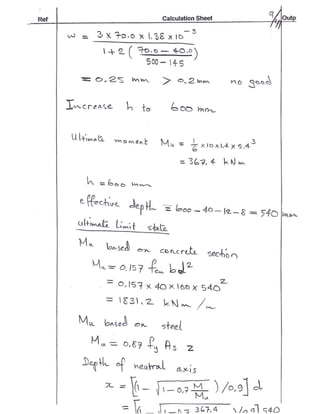 Ref
Calculation Sheet
9/
Outp
ω = 3 x 70.0 x 1.38 x 10⁻³
1 + 2 ( 70.0 - 40.0 )
500 - 145
= 0.25 mm > 0.2 mm no good
Increase h to 600 mm
Ultimate moment Mu = 1/6 x 10 x 1.4 x 5.4³
= 367.4 kNm
h = 600 mm
effective depth = 600 - 40 - 12 - 8 = 540 mm
ultimate Limit state
Mu based on concrete section
Mu = 0.157 fcu bd²
= 0.157 x 40 x 1000 x 540²
= 1831.2 kNm /m
Mu based on steel
Mu = 0.87 fy As z
Depth of neutral axis
x = [(1 - √1 - 0.7 M/Mu ) /0.9] d
367.4
540